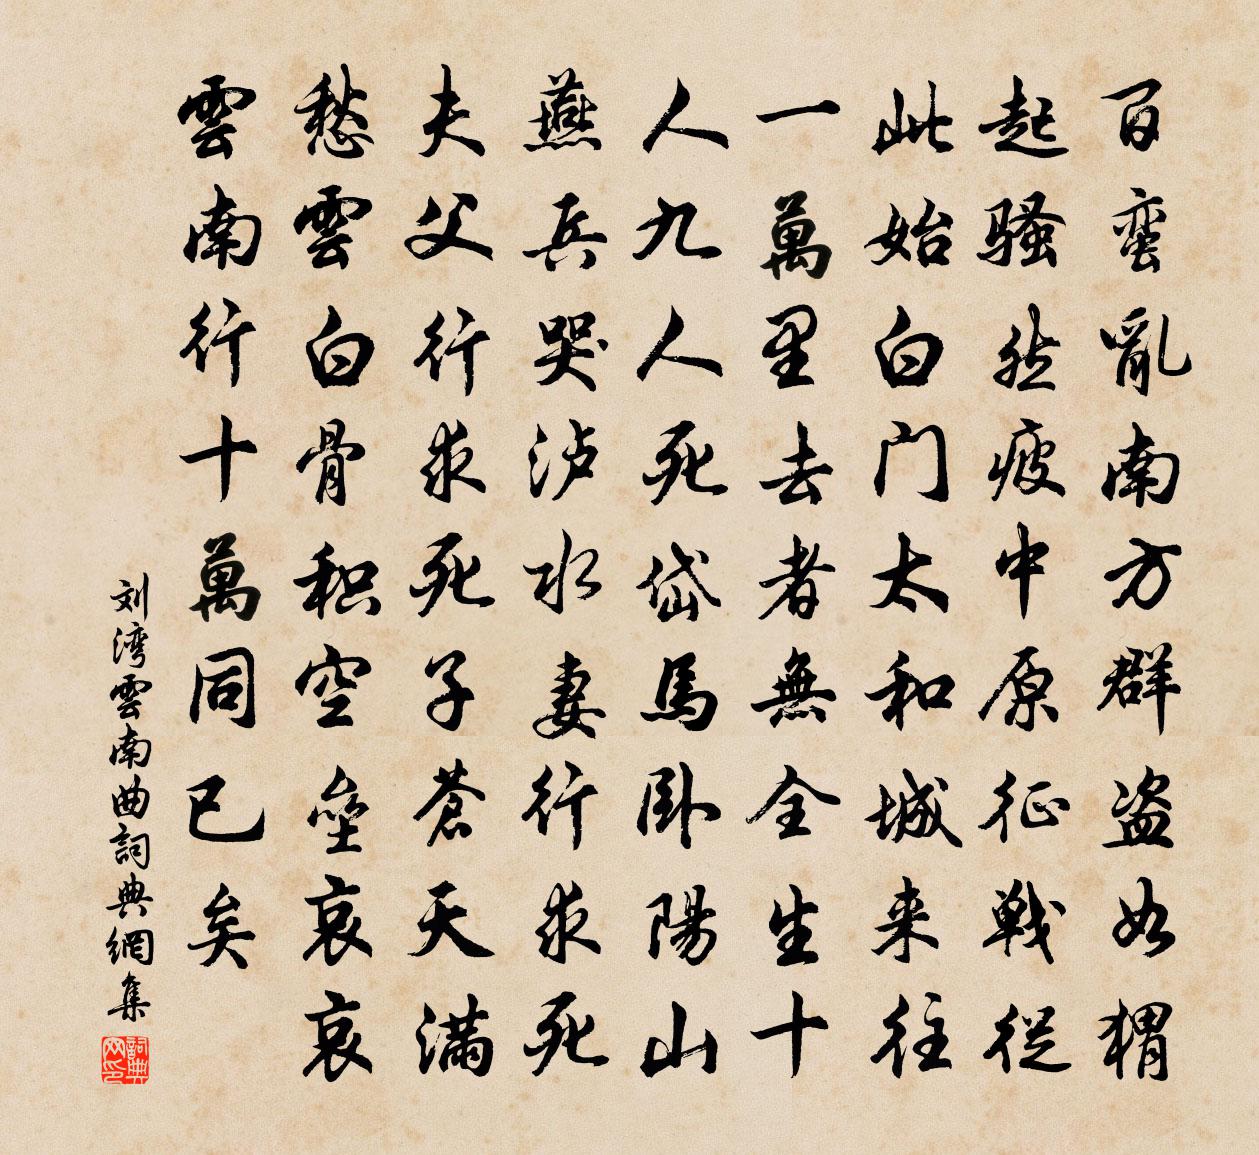 百蛮亂南方群盗如猬
起骚然疲中原征戦從
此始白门太和城来往
一萬里去者無全生十
人九人死岱馬卧陽山
燕兵哭泸水妻行求死
夫父行求死子蒼天满
愁雲白骨积空垒哀哀
雲南行十萬同已矣
刘湾雲南曲詞典網集
詞典网印